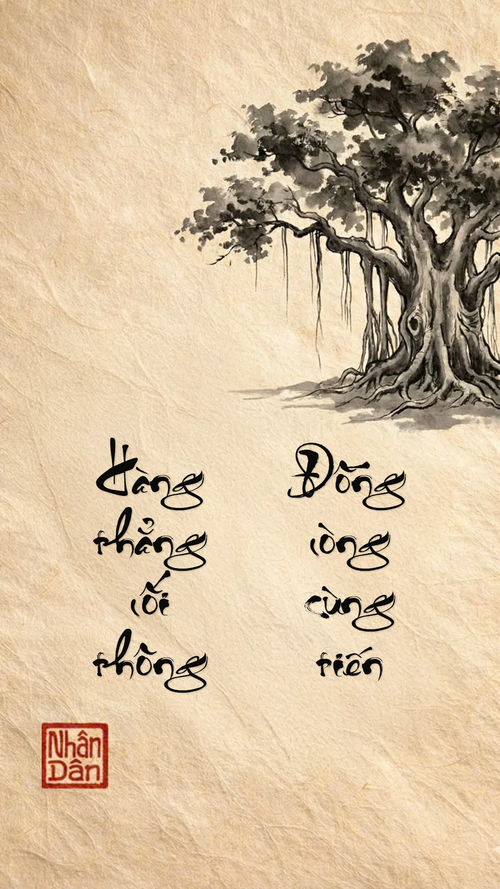 Hàng
thẳng
lối
thông
Đồng
lòng
cùng
tiến
Nhân
Dân